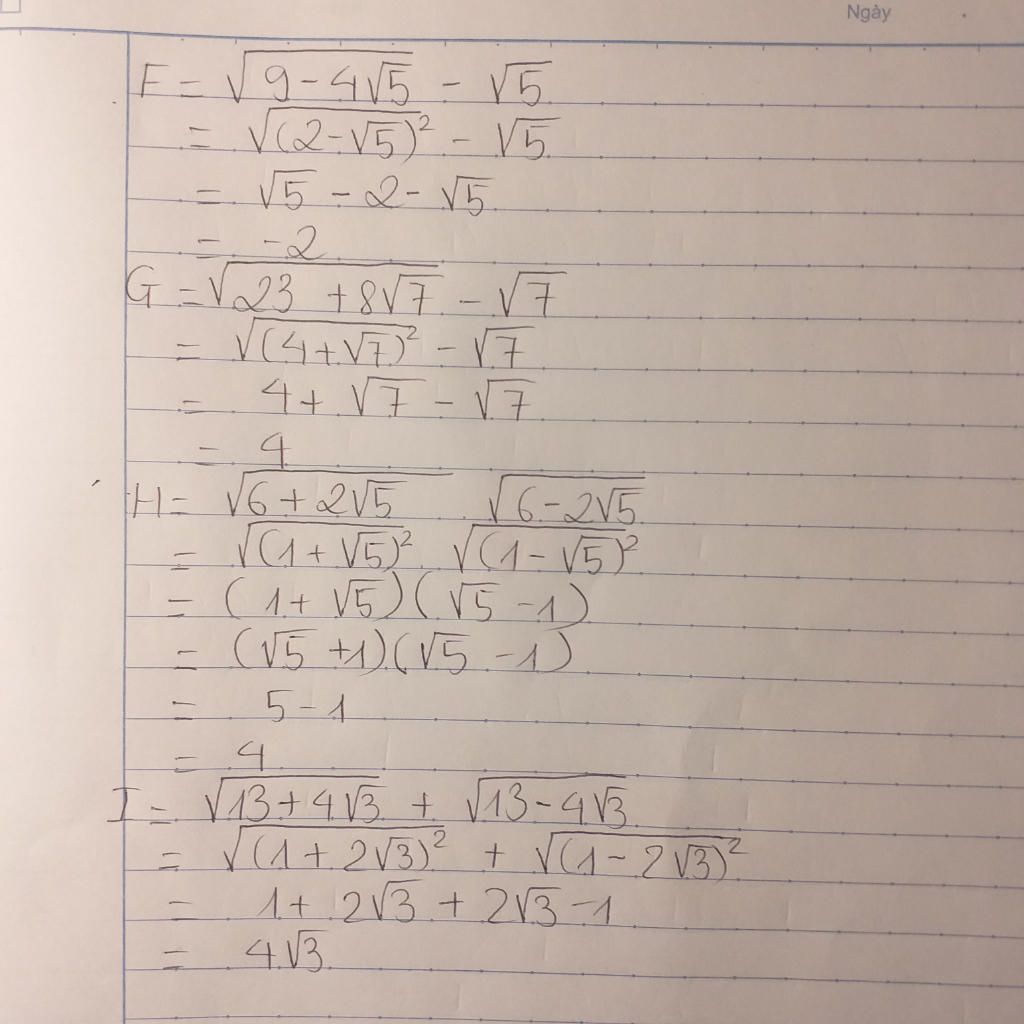 Ngày
F = √(9 - 4√5) - √5
= √((2 - √5)²) - √5
= √5 - 2 - √5
= -2
G = √(23 + 8√7) - √7
= √((4 + √7)²) - √7
= 4 + √7 - √7
= 4
H = √(6 + 2√5) √(6 - 2√5)
= √((1 + √5)²) √((1 - √5)²)
= (1 + √5)(√5 - 1)
= (√5 + 1)(√5 - 1)
= 5 - 1
= 4
I = √(13 + 4√3) + √(13 - 4√3)
= √((1 + 2√3)²) + √((1 - 2√3)²)
= 1 + 2√3 + 2√3 - 1
= 4√3